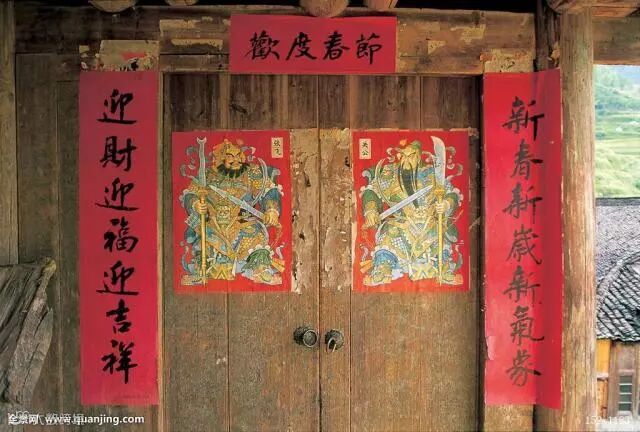 歡度春節
新春新歲新氣象
迎財迎福迎吉祥
張飞
关公
全景网 www.quanjing.com